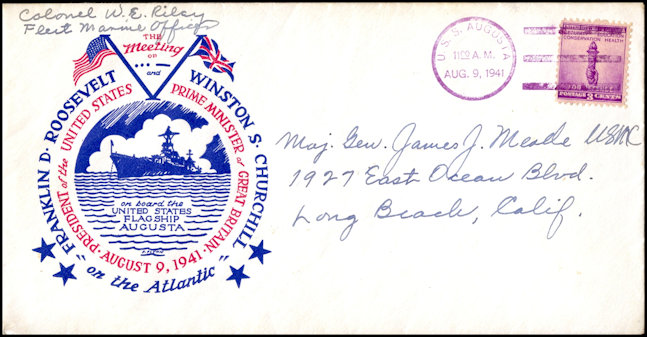 Colonel W. E. Riley
Fleet Marine Officer
THE
Meeting
OF
and
FRANKLIN D. ROOSEVELT
WINSTON S. CHURCHILL
PRESIDENT of the UNITED STATES
PRIME MINISTER of GREAT BRITAIN
on board the
UNITED STATES
FLAGSHIP
AUGUSTA
AUGUST 9, 1941
"on the Atlantic"
U. S. S. AUGUSTA
11 00 A.M.
AUG. 9, 1941
SECURITY EDUCATION
CONSERVATION HEALTH
FOR DEFENSE
POSTAGE 3 CENTS
Maj. Gen. James J. Meade USMC
1927 East Ocean Blvd.
Long Beach, Calif.